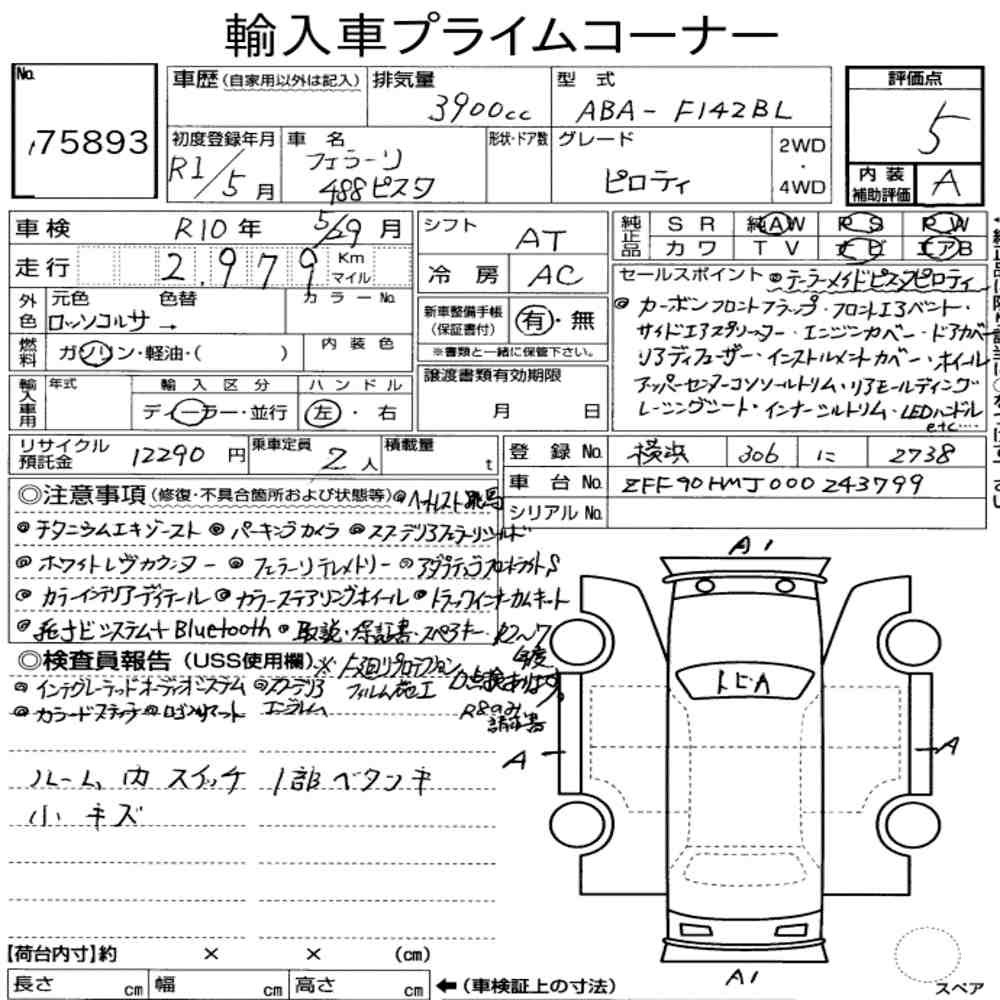 輸入車プライムコーナー
No. 75893
車歴 (自家用以外は記入)
排気量 3900cc
型式 ABA-F142BL
評価点 5
初度登録年月 R1/5月
車名 フェラーリ 488ピスタ
形状・ドア数
グレード ピロティ
2WD・4WD
内装補助評価 A
車検 R10年 5/29月
走行 2,979 Km マイル
シフト AT
冷房 AC
純正品 SR 純AW PS PW
カワ TV ナビ エアB
外色 元色 色替 カラーNo.
ロッソコルサ →
燃料 ガソリン・軽油・( )
内装色
新車整備手帳 (保証書付) 有・無
※書類と一緒に保管下さい。
譲渡書類有効期限 月 日
セールスポイント ◎テーラーメイドピスタピロティ
◎カーボンフロントフラップ・フロントエアベント・
サイドエアスプリッター・エンジンカバー・ドアカバー
リアディフューザー・インストルメントカバー・ホイール
アッパーセンターコンソールトリム・リアモールディング
レーシングシート・インナーシルトリム・LEDハンドル
etc‥‥
輸入車用 年式 輸入区分 ディーラー・並行
ハンドル 左・右
リサイクル預託金 12290円
乗車定員 2人
積載量 t
登録No. 横浜 306 に 2738
車台No. ZFF90HMJ000243799
シリアルNo.
◎注意事項 (修復・不具合箇所および状態等) ◎ヘッドレスト跳馬
◎チタニウムエキゾースト ◎パーキングカメラ ◎スクーデリアフェラーリシールド
◎ホワイトレヴカウンター ◎フェラーリテレメトリー ◎アダプティブフロントライトS
◎カラーインテリアディテール ◎カラーステアリングホイール ◎トラックインナーカムキット
◎純ナビシステム+Bluetooth ◎取説・保証書・スペアキー・R2〜7年度
◎検査員報告 (USS使用欄) ※ F3廻りプロテクションフィルム施工 ◎点検あります。
R8のみ請求書
◎インテグレーテッドオーディオシステム ◎スクーデリアエンブレム
◎カラードステッチ ◎ロゴ入りマット
ルーム内 スイッチ 1部ベタツキ
小キズ
A1
トビA
A
A
A1
スペア
【荷台内寸】約 × × (cm)
長さ cm 幅 cm 高さ cm ←(車検証上の寸法)